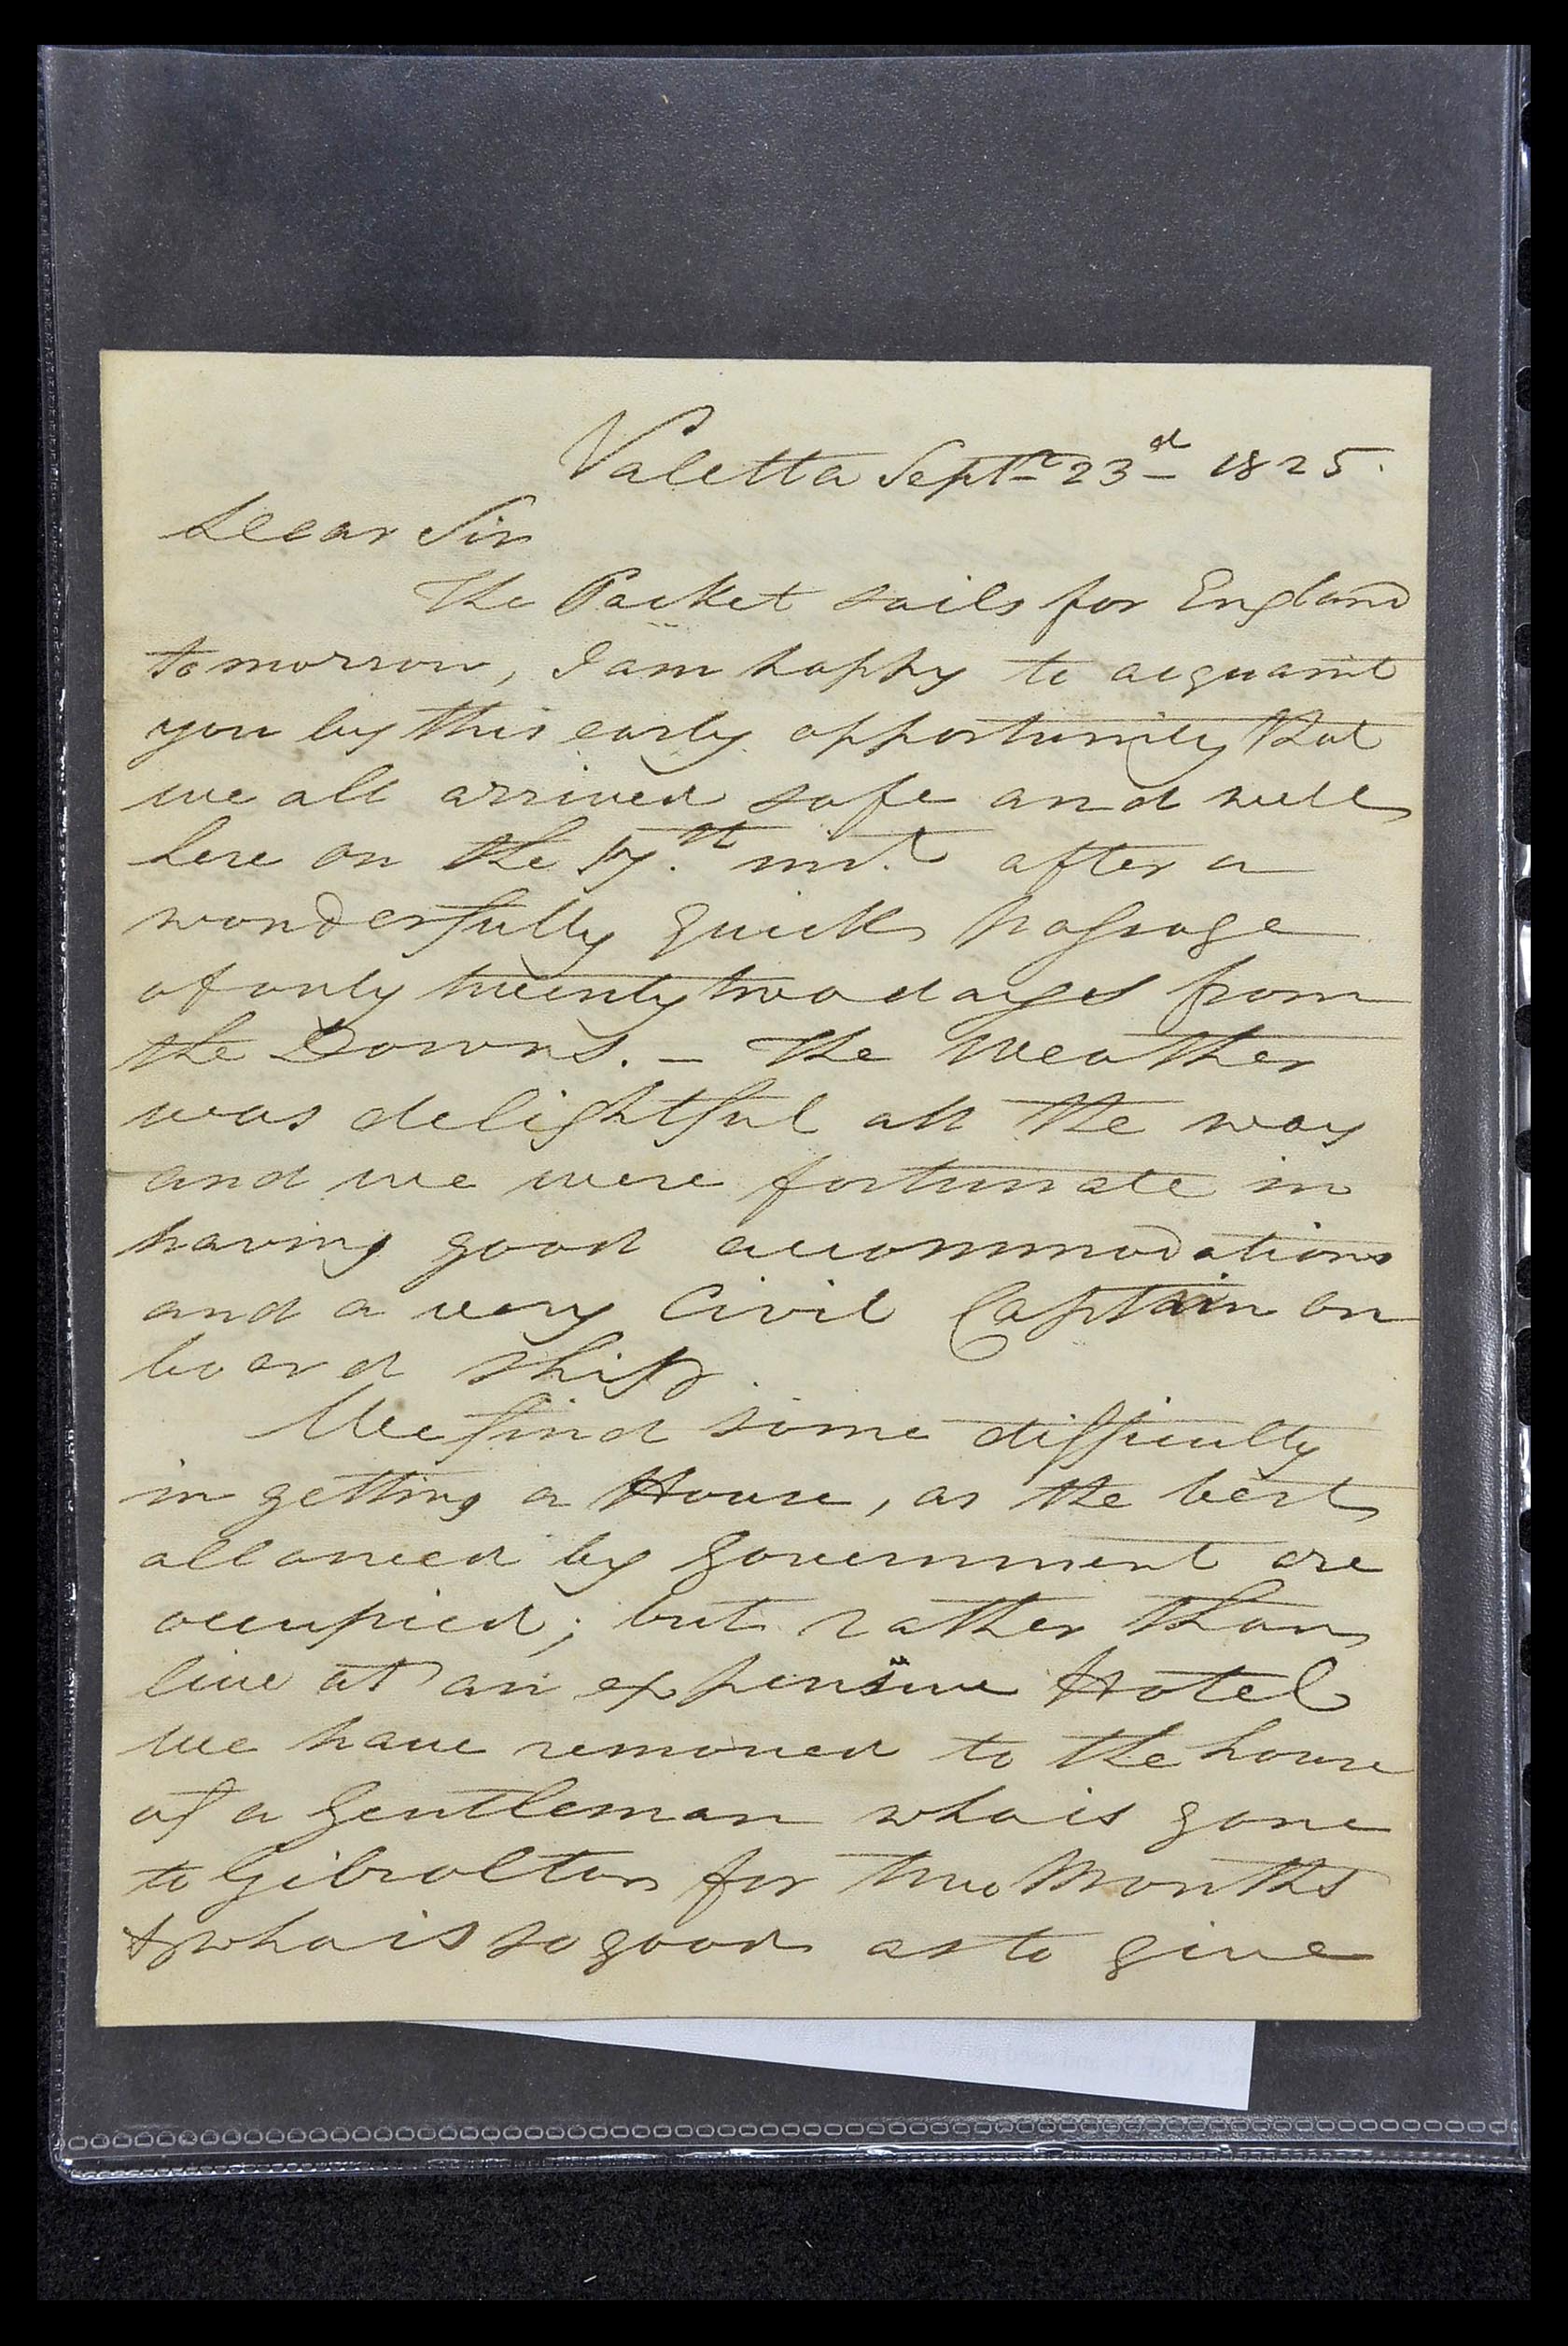 Valetta Septr 23d 1825.
Dear Sir
The Packet sails for England
tomorrow, I am happy to acquaint
you by this early opportunity that
we all arrived safe and well
here on the 17.th inst. after a
wonderfully quick passage
of only twenty two days from
the Downs. — The Weather
was delightful all the way
and we were fortunate in
having good accommodations
and a very Civil Captain on
board ship.
We find some difficulty
in getting a House, as the best
allowed by Government are
occupied; but rather than
live at an expensive Hotel
we have removed to the house
of a Gentleman who is gone
to Gibraltar for two Months
& who is so good as to give